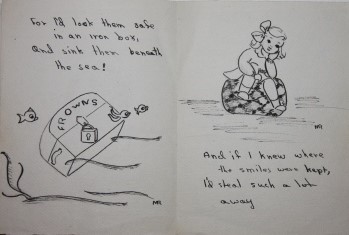 For I'd lock them safe
in an iron box,
And sink them beneath
the sea!
FROWNS
MR
MR
And if I knew where
the smiles were kept,
I'd steal such a lot
away